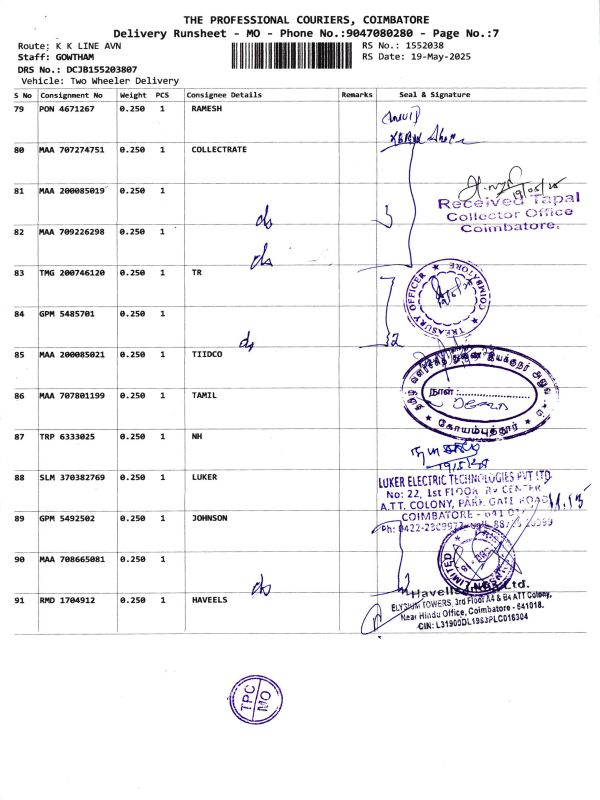 THE PROFESSIONAL COURIERS, COIMBATORE
Delivery Runsheet - MO - Phone No.:9047080280 - Page No.:7
Route: K K LINE AVN
RS No.: 1552038
Staff: GOWTHAM
RS Date: 19-May-2025
DRS No.: DCJB155203807
Vehicle: Two Wheeler Delivery
S No Consignment No Weight PCS Consignee Details Remarks Seal & Signature
79 PON 4671267 0.250 1 RAMESH
80 MAA 707274751 0.250 1 COLLECTRATE
81 MAA 200085019 0.250 1
19/05/25
Received Tapal
Collector Office
Coimbatore.
ds
3
82 MAA 709226298 0.250 1
ds
83 TMG 200746120 0.250 1 TR
TREASURY OFFICER ★ COIMBATORE ★
84 GPM 5485701 0.250 1
ds
2
85 MAA 200085021 0.250 1 TIIDCO
86 MAA 707801199 0.250 1 TAMIL
நாள்:
கோயம்புத்தூர்
87 TRP 6333025 0.250 1 NH
19/5/25
88 SLM 370382769 0.250 1 LUKER
LUKER ELECTRIC TECHNOLOGIES PVT LTD
No: 22, 1st FLOOR, RV CENTER
A.T.T. COLONY, PARK GATE ROAD
COIMBATORE - 641
11.13
89 GPM 5492502 0.250 1 JOHNSON
90 MAA 708665081 0.250 1
ds
LIMITED
91 RMD 1704912 0.250 1 HAVEELS
Havells Ltd.
ELYSIUM TOWERS, 3rd Floor A4 & B4 ATT Colony,
Near Hindu Office, Coimbatore - 641018.
CIN: L31900DL1983PLC016304
TPC
MO